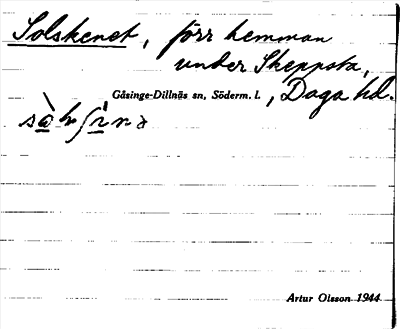 Solskenet, förr hemman
under Skeppsta,
Gåsinge-Dillnäs sn, Söderm. l., Daga hd.
Artur Olsson 1944